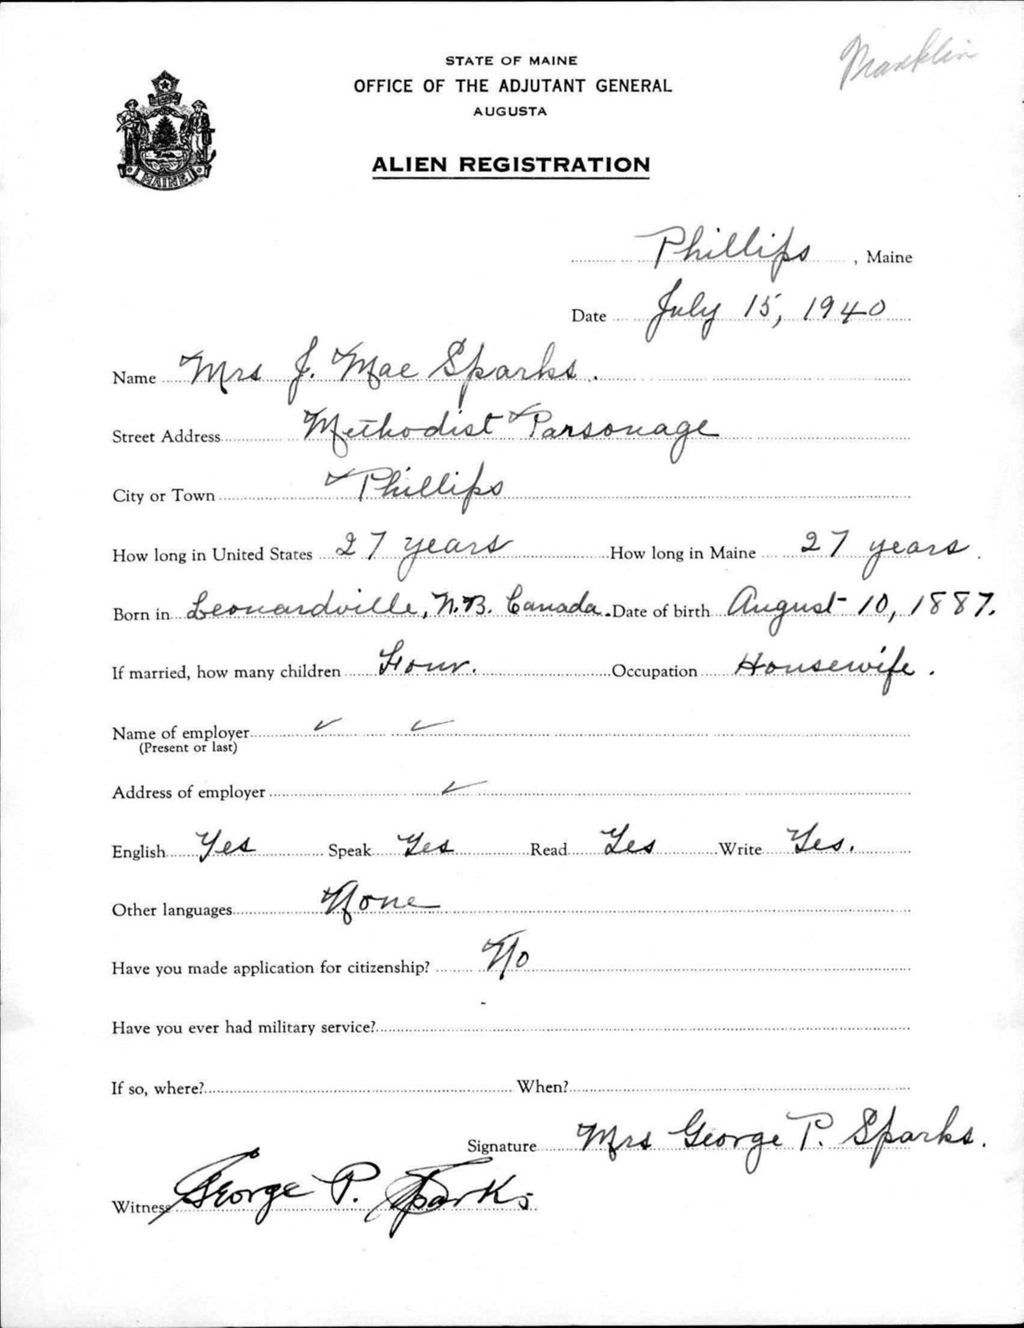 Franklin
STATE OF MAINE
OFFICE OF THE ADJUTANT GENERAL
AUGUSTA
MAINE
ALIEN REGISTRATION
Phillips, Maine
Date July 15, 1940
Name Mrs J. Mae Sparks.
Street Address Methodist Parsonage
City or Town Phillips
How long in United States 27 years How long in Maine 27 years.
Born in Leonardville, N.B. Canada. Date of birth August 10, 1887.
If married, how many children Four. Occupation Housewife.
Name of employer ✓ ✓
(Present or last)
Address of employer ✓
English Yes Speak Yes Read Yes Write Yes.
Other languages None
Have you made application for citizenship? No
Have you ever had military service? -
If so, where? When?
Signature Mrs George P. Sparks.
Witness George P. Sparks